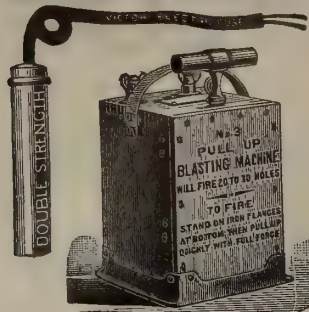 VICTOR ELECTRIC FUSE
DOUBLE STRENGTH
No 3
PULL UP
BLASTING MACHINE
WILL FIRE 20 TO 30 HOLES
TO FIRE
STAND ON IRON FLANGES
AT BOTTOM, THEN PULL UP
QUICKLY WITH FULL FORCE